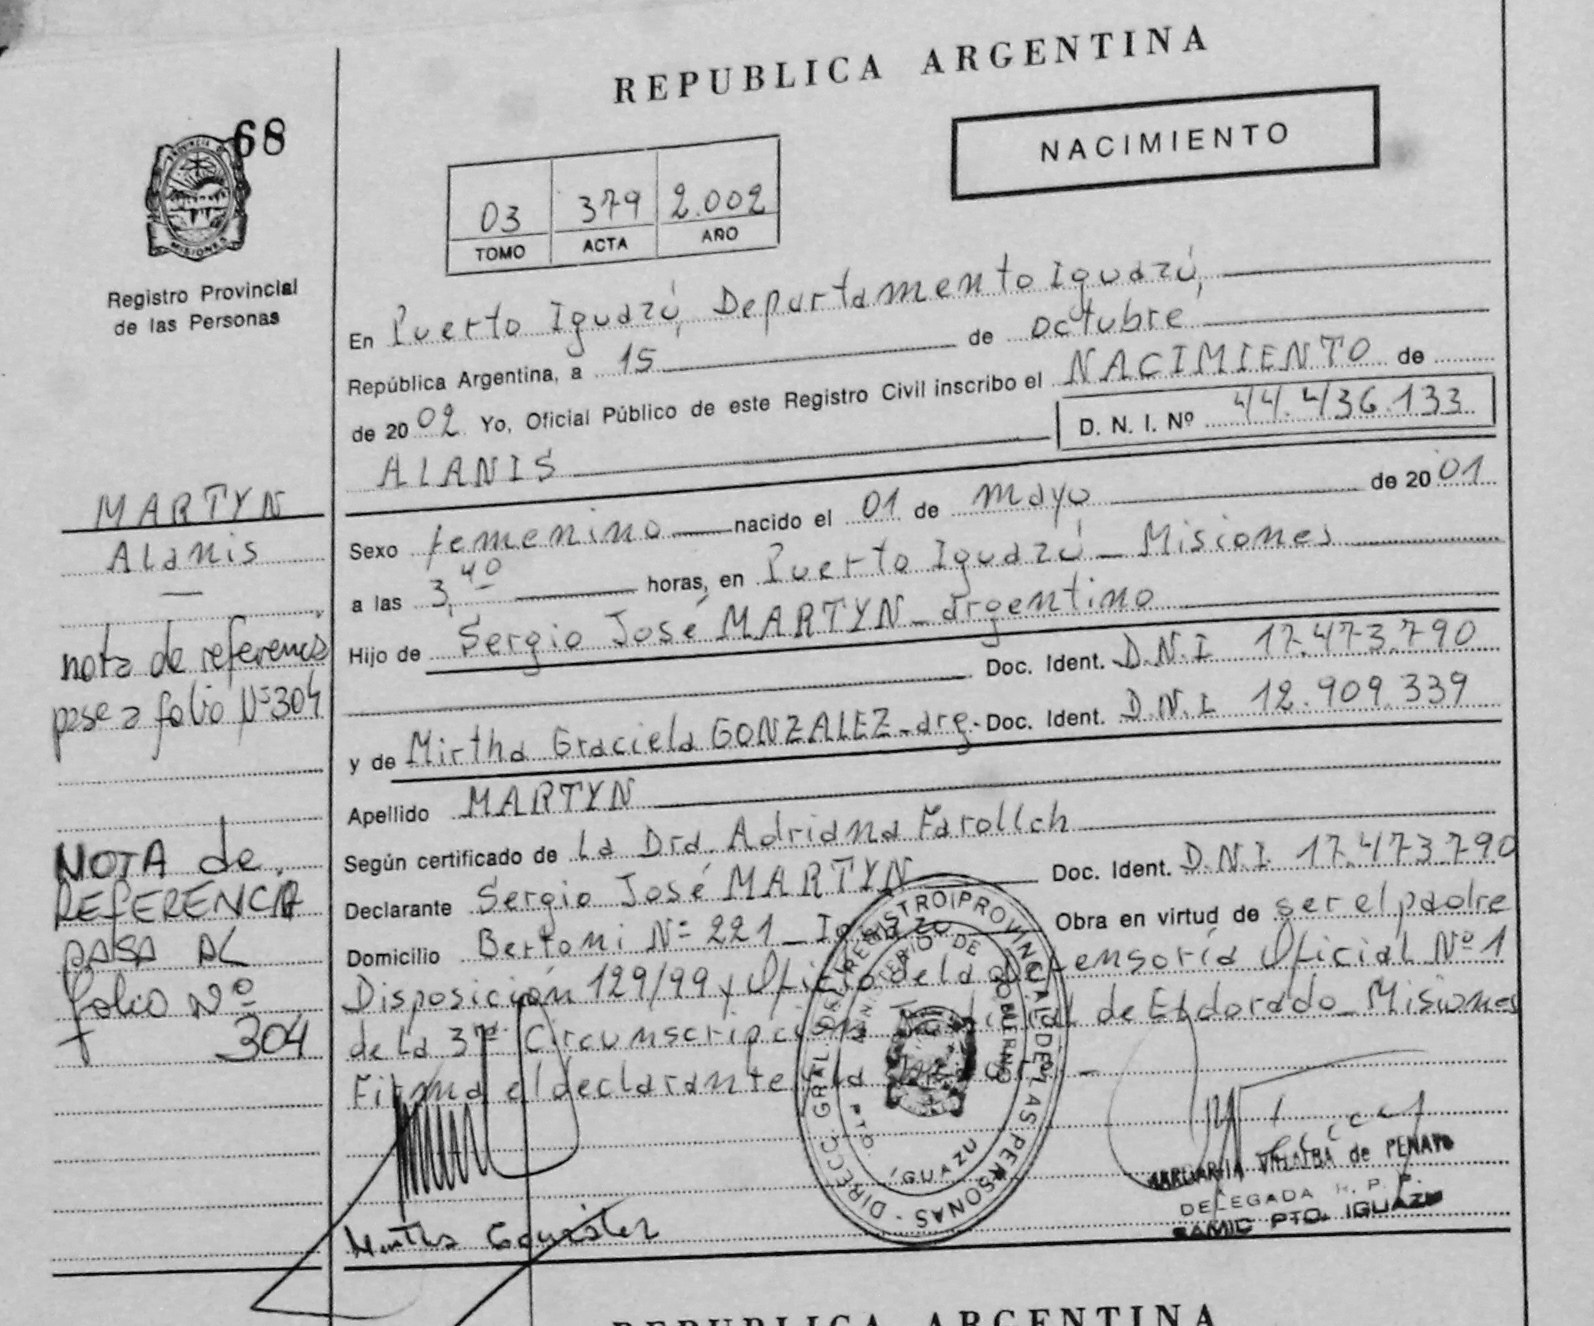 REPUBLICA ARGENTINA
68
MISIONES
Registro Provincial
de las Personas
NACIMIENTO
03 379 2.002
TOMO ACTA AÑO
En Puerto Iguazú, Departamento Iguazú,
República Argentina, a 15 de octubre
de 2002 Yo, Oficial Público de este Registro Civil inscribo el NACIMIENTO de
D. N. I. Nº 44.436.133
ALANIS
Sexo femenino nacido el 01 de mayo de 2001
a las 3,40 horas, en Puerto Iguazú - Misiones
Hijo de Sergio José MARTYN - argentino
Doc. Ident. D.N.I 17.473.790
y de Mirtha Graciela GONZALEZ - arg. Doc. Ident. D.N.I. 12.909.339
Apellido MARTYN
Según certificado de La Dra. Adriana Farollch
Declarante Sergio José MARTYN Doc. Ident. D.N.I. 17.473.790
Domicilio Bertoni Nº 221 - Obra en virtud de ser el padre
Disposición 129/99 y Oficio de la Defensoría Oficial Nº 1
de la 3ra Circunscripción de Eldorado - Misiones
Firma el declarante y la
MARTYN
Alanis
nota de referencia
pase a folio Nº 304
NOTA de
REFERENCIA
PASA AL
folio Nº
304
DIRECC. GRAL. DEL REGISTRO PROVINCIAL DE LAS PERSONAS
MINISTERIO DE GOBIERNO
PTO. IGUAZU
Mirtha González
VILLALBA de PENAYO
DELEGADA R. P. P.
SAMIC PTO. IGUAZU
REPUBLICA ARGENTINA